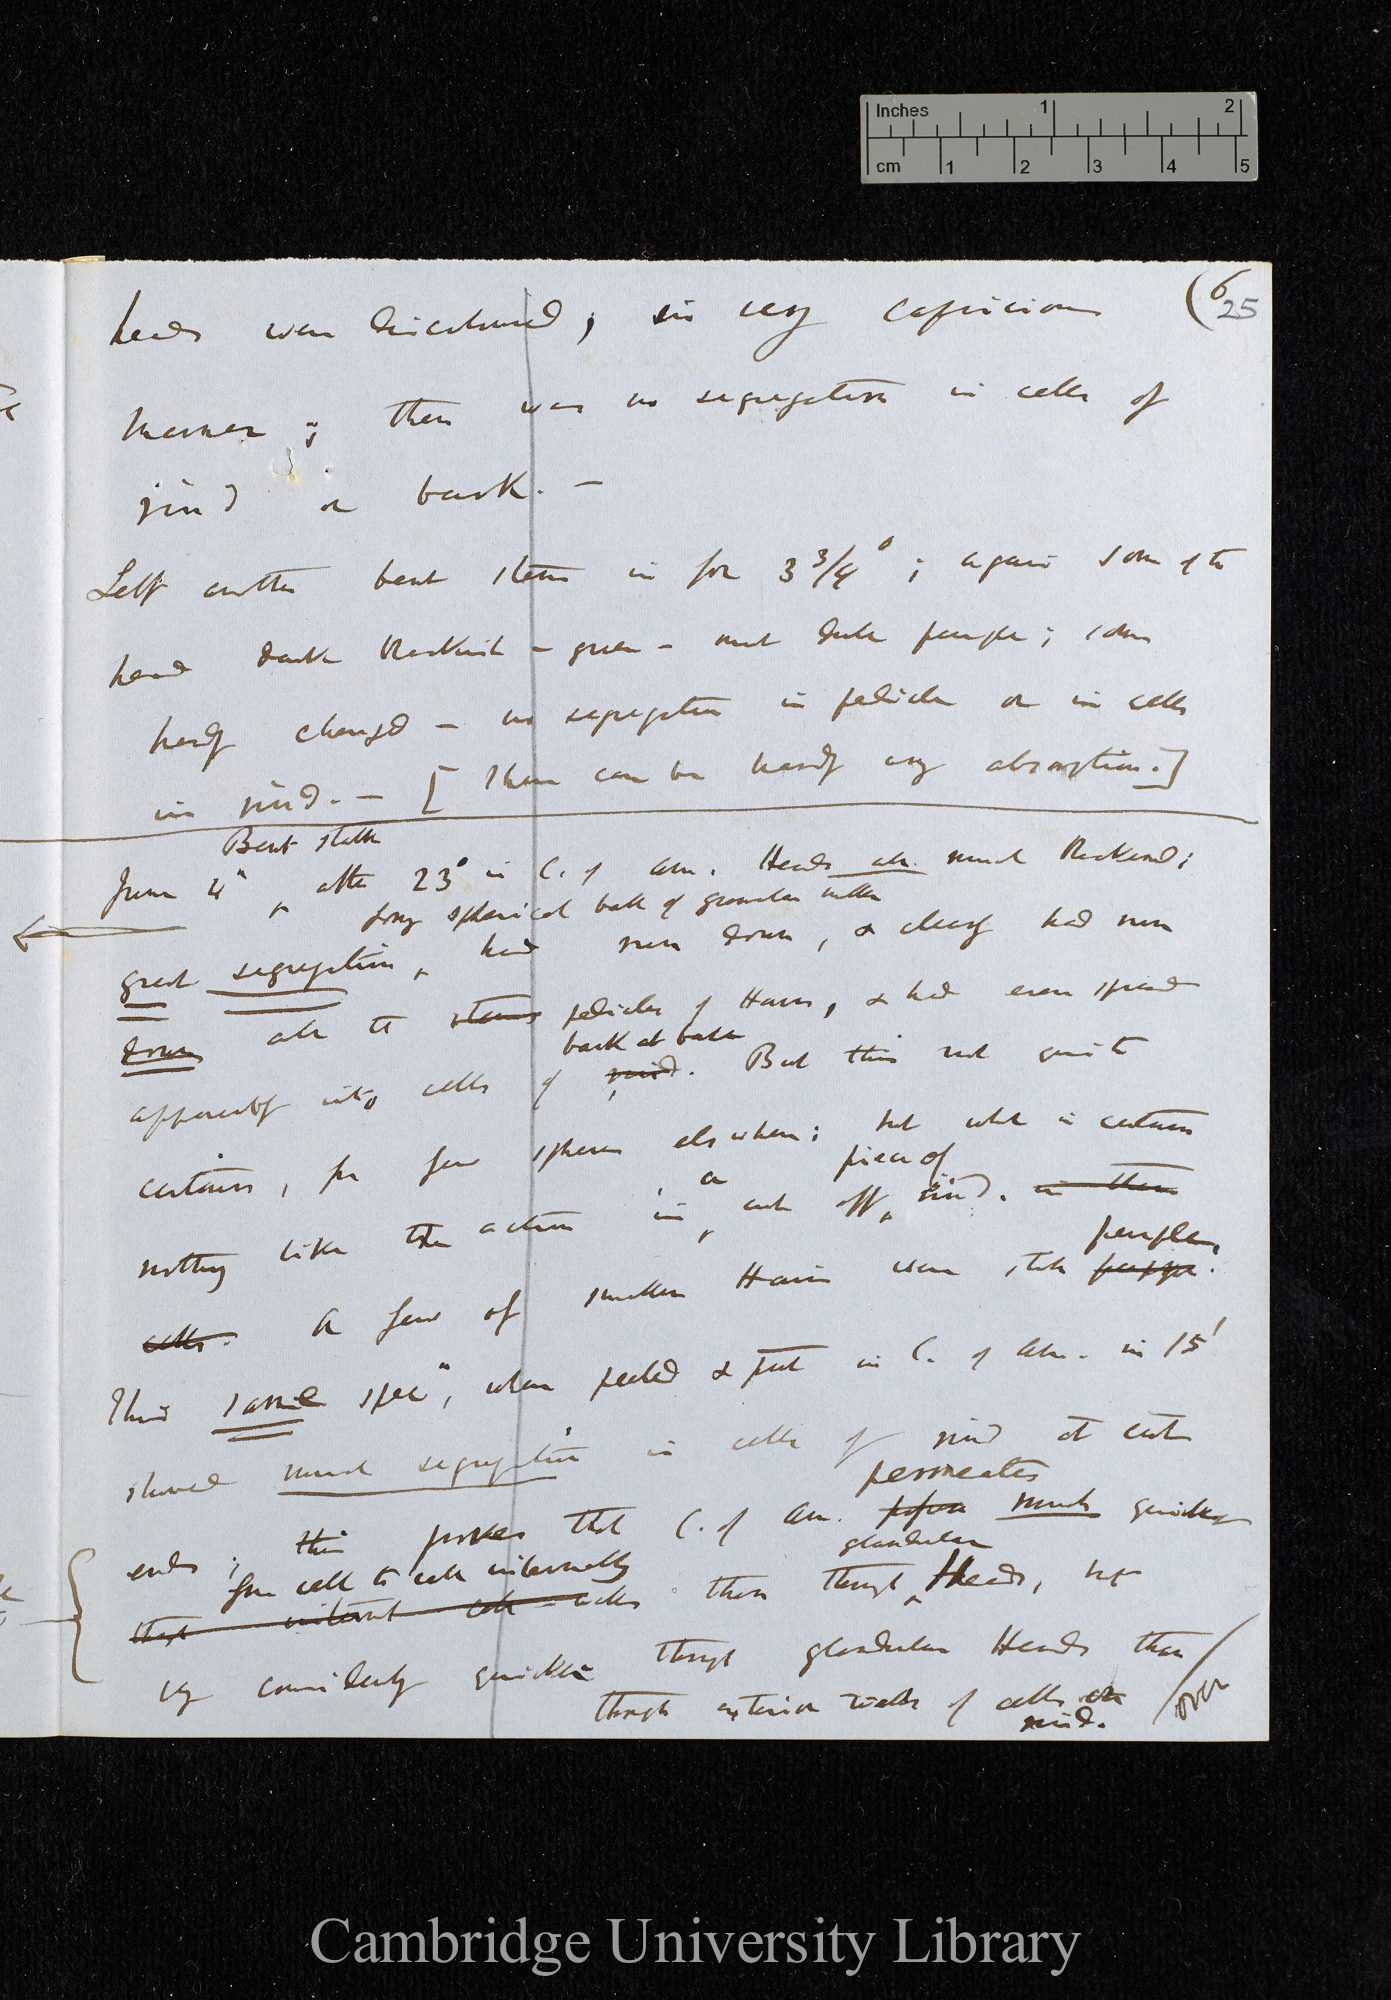 Inches 1 2
cm 1 2 3 4 5
(6
25
heads were discoloured; in very capricious
manner; there was no segregation in cells of
rind or bark. —
Left another bent stem in for 3 3/4°; again some of the
head dark blackish-green - not dark purple; some
hardly changed — no segregation in pedicels or in cells
in rind. — [There can be hardly any absorption.]
Bent stalk
June 4th, after 23° in C. of Am. Heads all much blackened;
long spherical balls of granular matter
great segregation, had run down, & clearly had run
down all the stems pedicels of Hairs, & had even spread
back at base
apparently into cells of rind. But this not quite
certain, for few spheres elsewhere; but what is certain
a piece of
nothing like the action in cut off rind. in them
purple,
cells. A few of smaller Hairs were still purple.
This same specn, when peeled & put in C. of Am. in 15'
showed much segregation in cells of rind at cut
permeates
ends; this proves that C. of Am. much quicker
from cell to cell internally glandular
than through Heads, but
very considerably quicker through glandular Heads than
through exterior walls of cells
rind.
over
Cambridge University Library